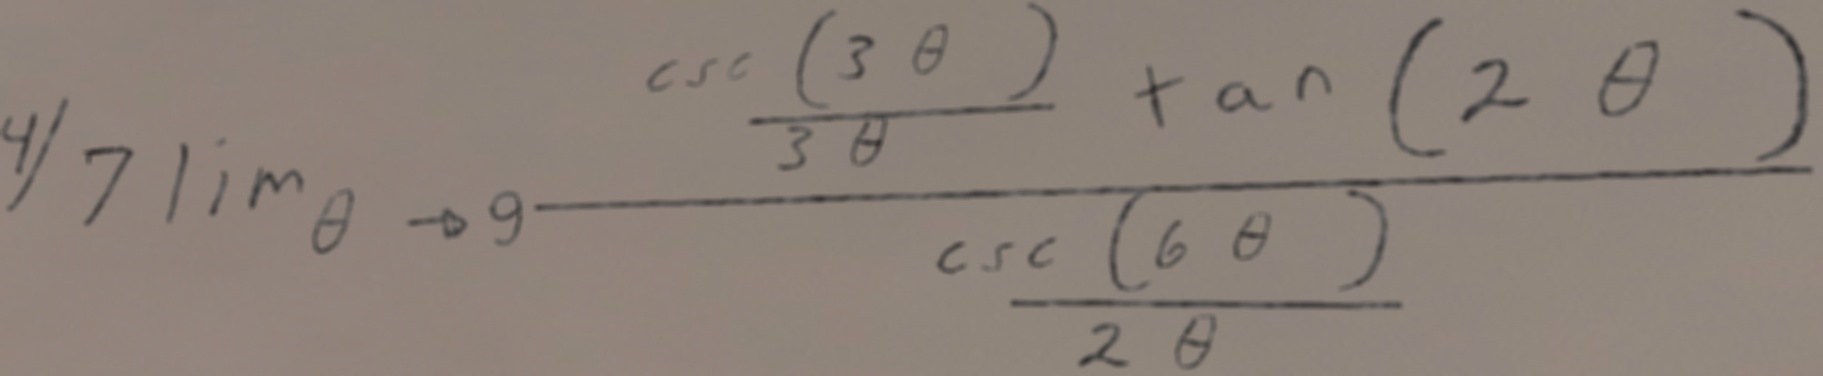 4/7 lim_{θ→9} \frac{\frac{csc(3θ)}{3θ} tan(2θ)}{\frac{csc(6θ)}{2θ}}